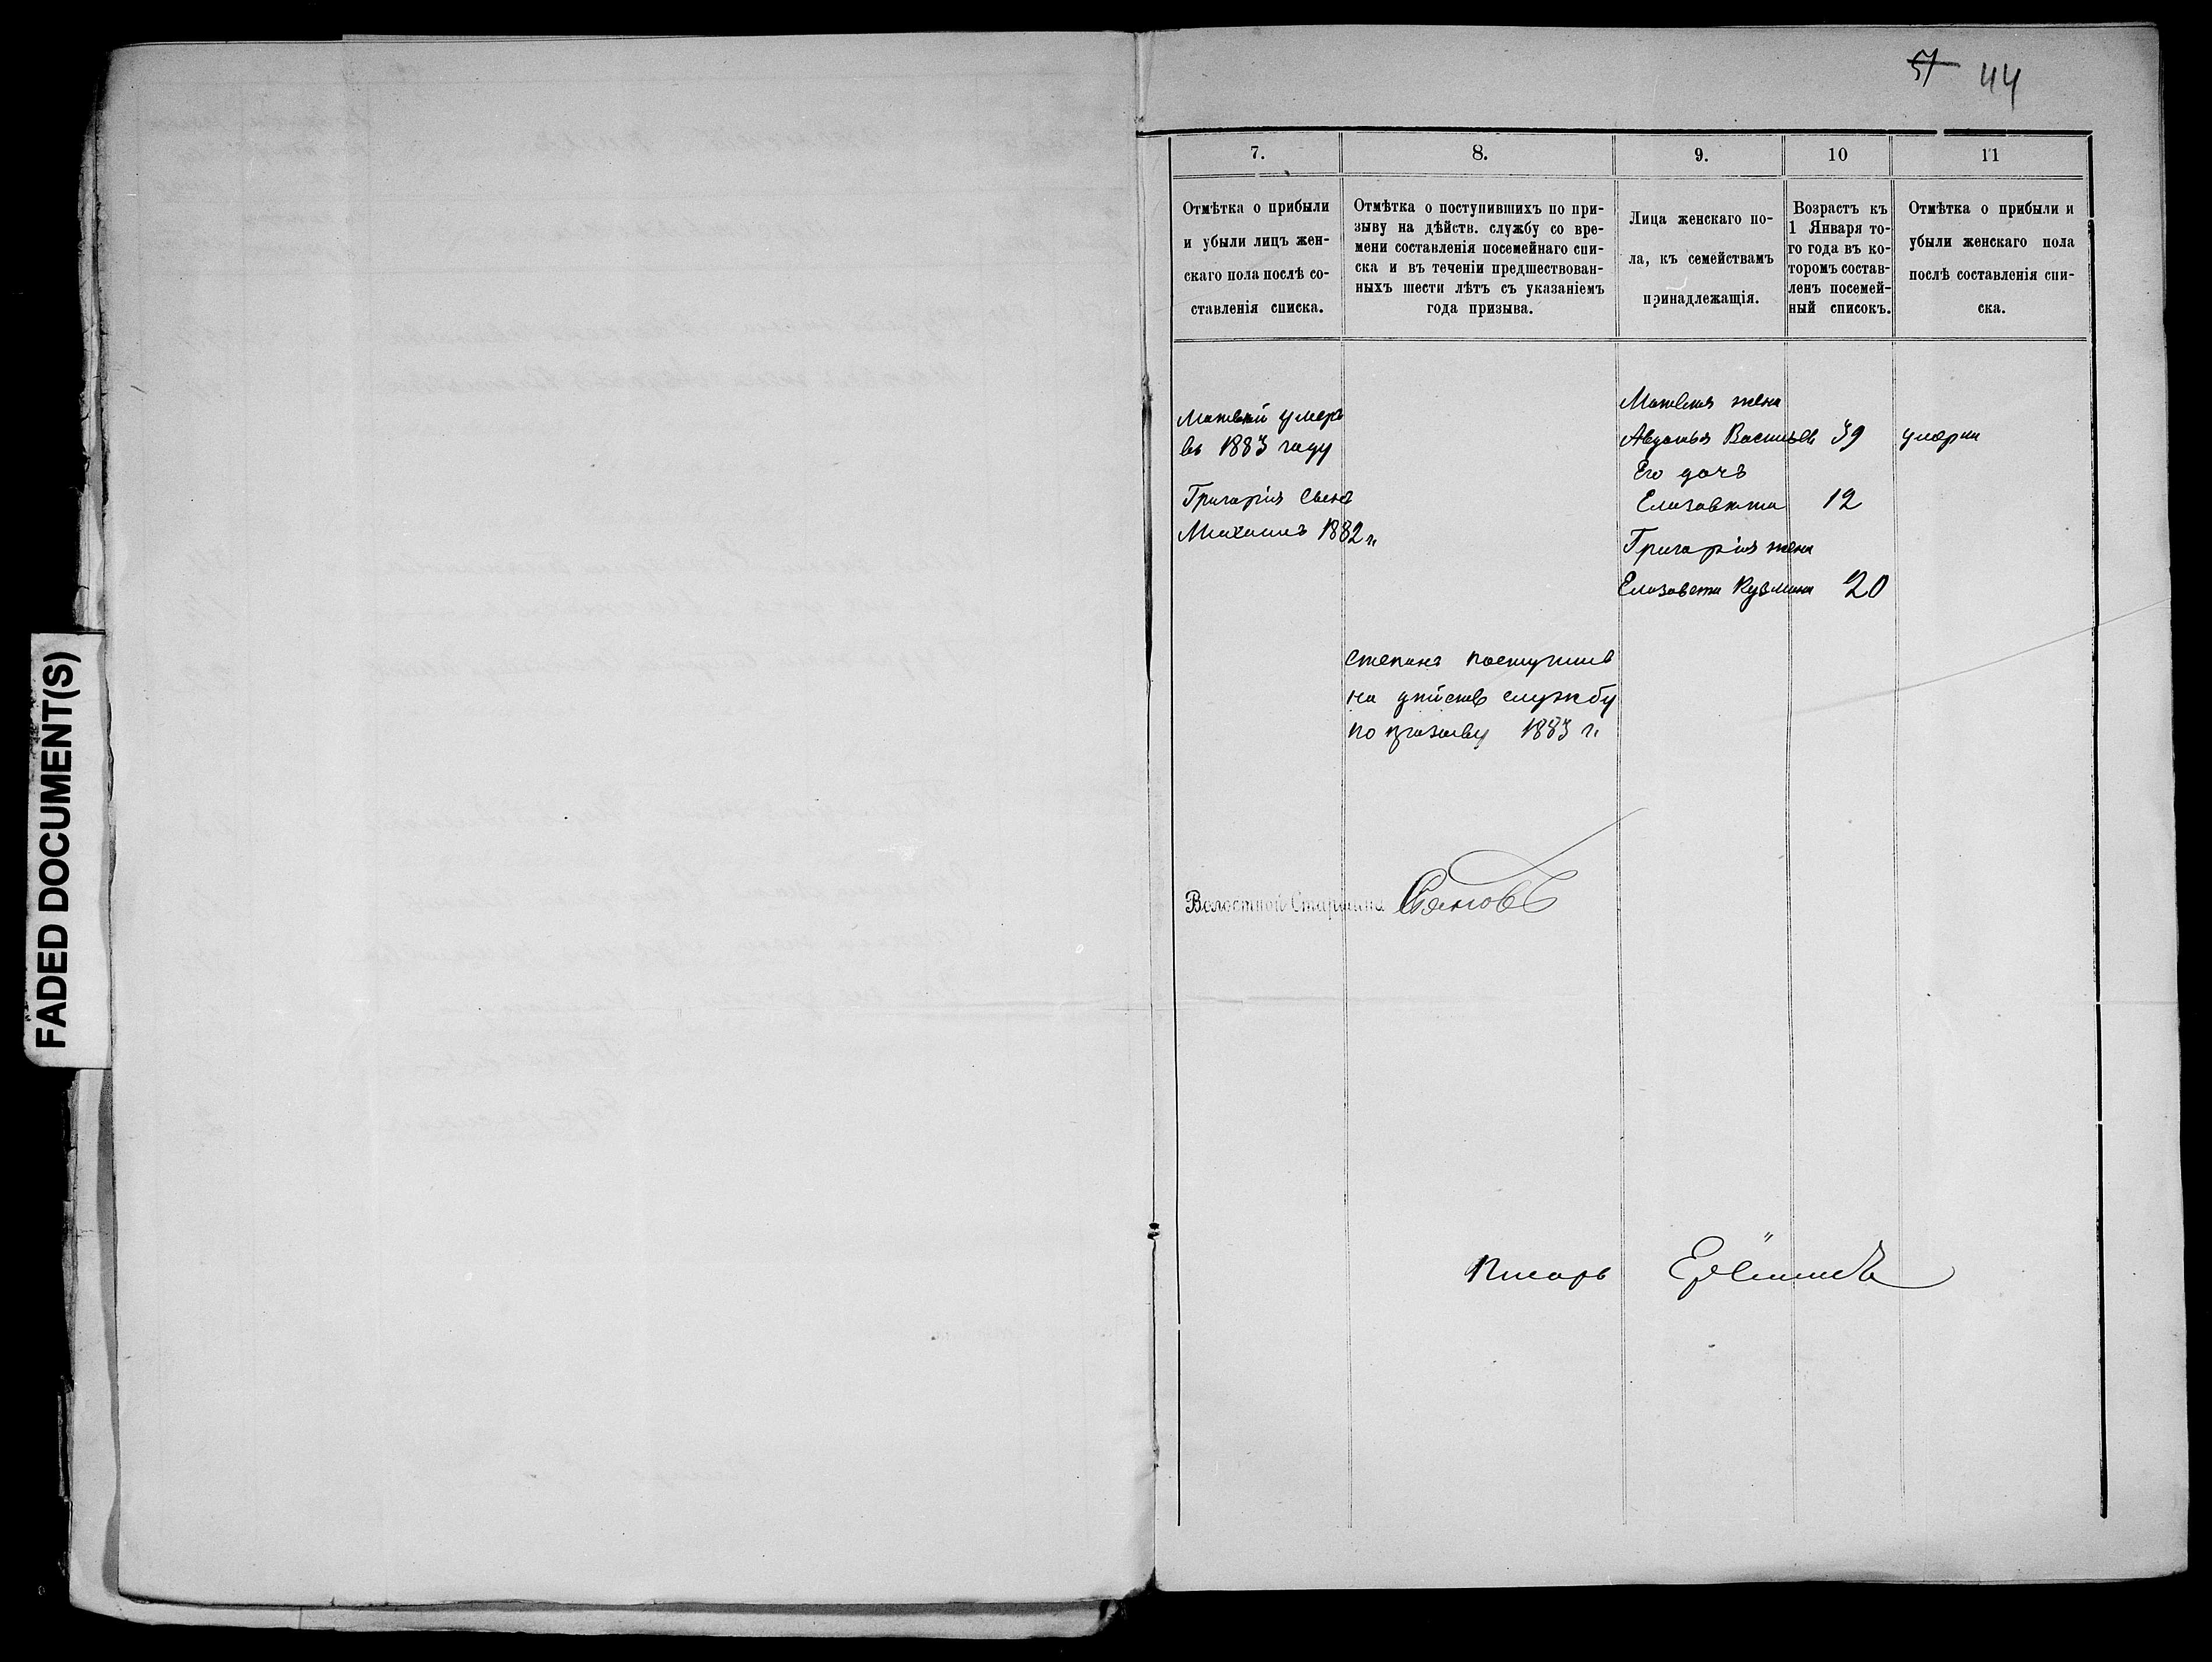 57 44
FADED DOCUMENT(S)
7. 8. 9. 10 11
Отмѣтка о прибыли
и убыли лицъ жен-
скаго пола послѣ со-
ставленія списка.
Отмѣтка о поступившихъ по при-
зыву на дѣйств. службу со вре-
мени составленія посемейнаго спи-
ска и въ теченіи предшествован-
ныхъ шести лѣтъ съ указаніемъ
года призыва.
Лица женскаго по-
ла, къ семействамъ
принадлежащія.
Возрастъ къ
1 Января то-
го года въ ко-
торомъ состав-
ленъ посемей-
ный списокъ.
Отмѣтка о прибыли и
убыли женскаго пола
послѣ составленія спи-
ска.
Матвѣй умеръ
въ 1883 году
Григорія сынъ
Михаилъ 1882 г.
Степанъ поступилъ
на дѣйств службу
по призыву 1883 г.
Матвея жена
Авдотья Васильев 39 умерла
Его дочь
Елизавѣта 12
Григорія жена
Елизавета Кузмина 20
Волостной Старшина
Писарь